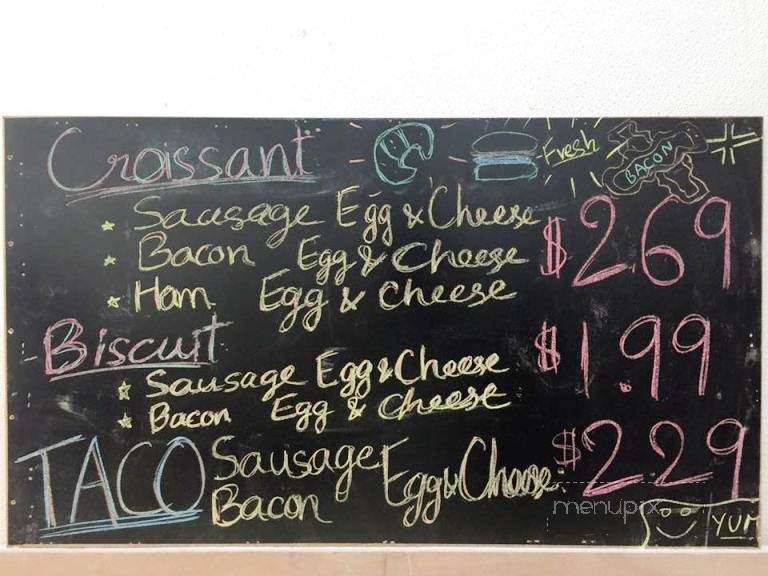 Croissant
Fresh
BACON
Sausage Egg & Cheese
Bacon Egg & Cheese
Ham Egg & Cheese
$2.69
Biscuit
Sausage Egg & Cheese
Bacon Egg & Cheese
$1.99
TACO
Sausage
Bacon
Egg & Cheese:
$2.29
menupix
YUM